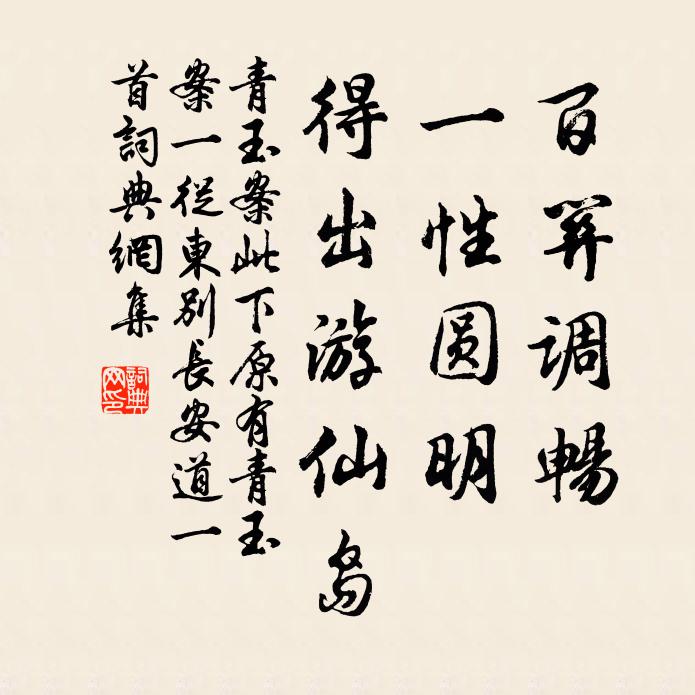 百关调暢
一性圆明
得出游仙島
青玉案此下原有青玉
案一從東别長安道一
首詞典網集
詞典
網印